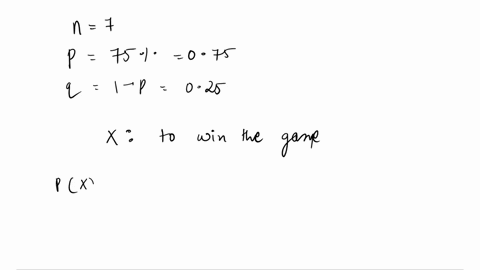 n = 7
P = 75 % = 0.75
q = 1 - P = 0.25
X : to win the game
P (X)